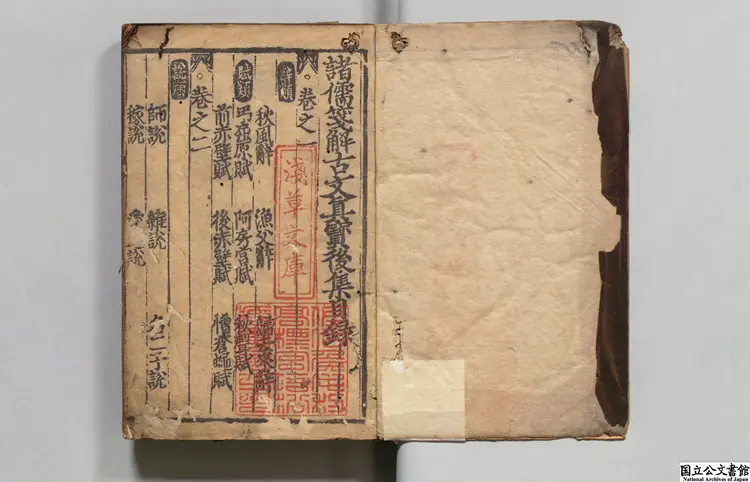 諸儒箋解古文真寶後集目録
卷之一
辭類
秋風辭 漁父辭 歸去來辭
賦類 弔屈原賦 阿房宮賦 秋聲賦
前赤壁賦 後赤壁賦 憎蒼蠅賦
卷之二
說類
師說 雜說 名二子說
稼說 說
淺草文庫
国立公文書館
National Archives of Japan